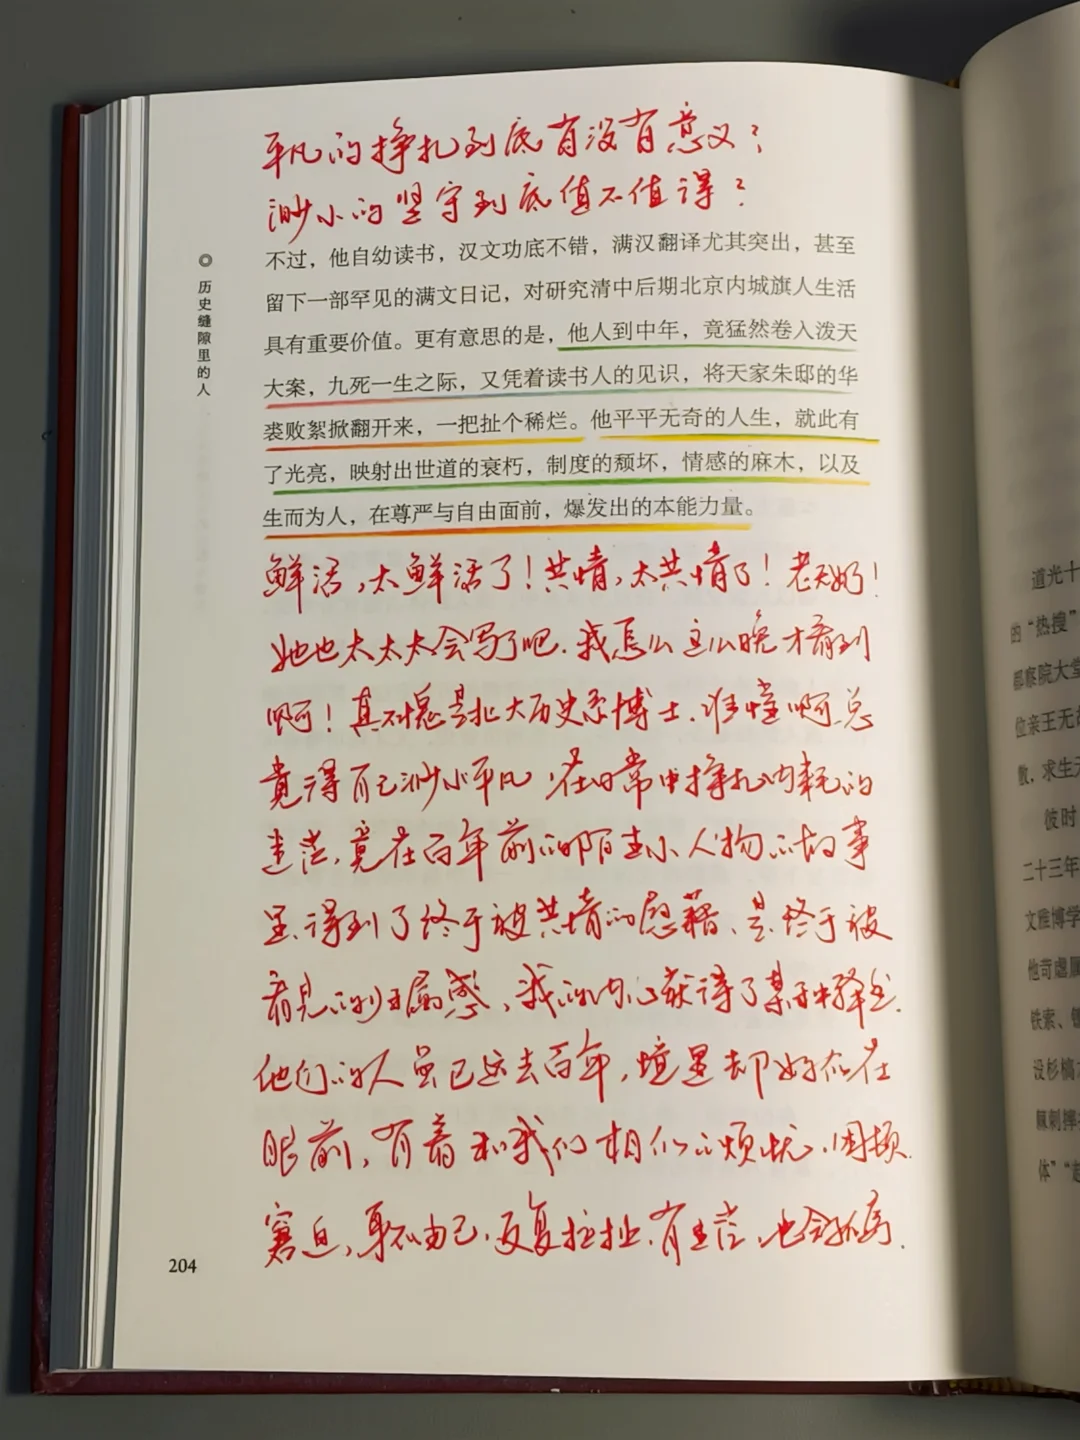 平凡的挣扎到底有没有意义?
渺小的坚守到底值不值得?
不过，他自幼读书，汉文功底不错，满汉翻译尤其突出，甚至
留下一部罕见的满文日记，对研究清中后期北京内城旗人生活
具有重要价值。更有意思的是，他人到中年，竟猛然卷入泼天
大案，九死一生之际，又凭着读书人的见识，将天家朱邸的华
裘败絮掀翻开来，一把扯个稀烂。他平平无奇的人生，就此有
了光亮，映射出世道的衰朽，制度的颓坏，情感的麻木，以及
生而为人，在尊严与自由面前，爆发出的本能力量。
鲜活，太鲜活了！共情，太共情了！老天奶！
她也太太太会写了吧.我怎么这么晚才看到
啊！真不愧是北大历史系博士.谁懂啊.总
觉得自己渺小平凡，在日常中挣扎内耗的
迷茫，竟在百年前的陌生小人物的故事
里.得到了终于被共情的慰藉、是终于被
看见的归属感，我的内心获得了某种释然.
他们的人虽已远去百年，境遇却好似在
眼前，有着和我们相似的烦忧.困顿.
窘迫，身不由己.反复拉扯.有坚信.也会
204
◎ 历史缝隙里的人
道光十
的“热搜”
都察院大堂
位亲王无
散，求生
彼时
二十三年
文雅博学
他苛虐属
铁索、
没杉槁
棘刺
体”“